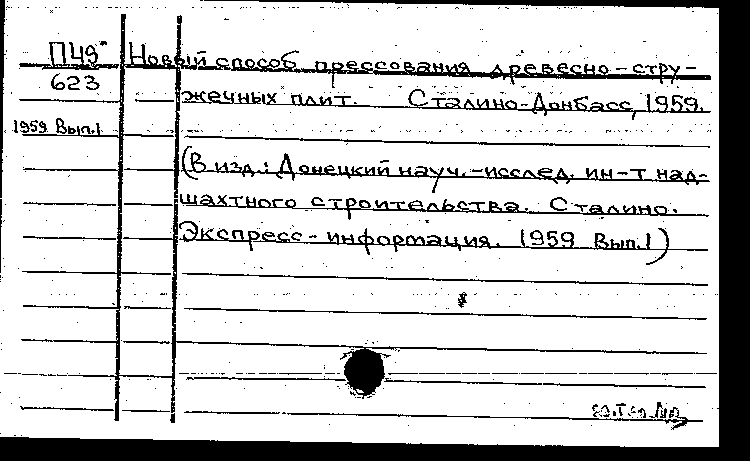 П49 Новый способ прессования древесно-стру-
623 жечных плит. Сталино-Донбасс, 1959.
1959 Вып.1
(В изд.: Донецкий науч.-исслед. ин-т над-
шахтного строительства. Сталино.
Экспресс-информация. 1959 Вып.1)